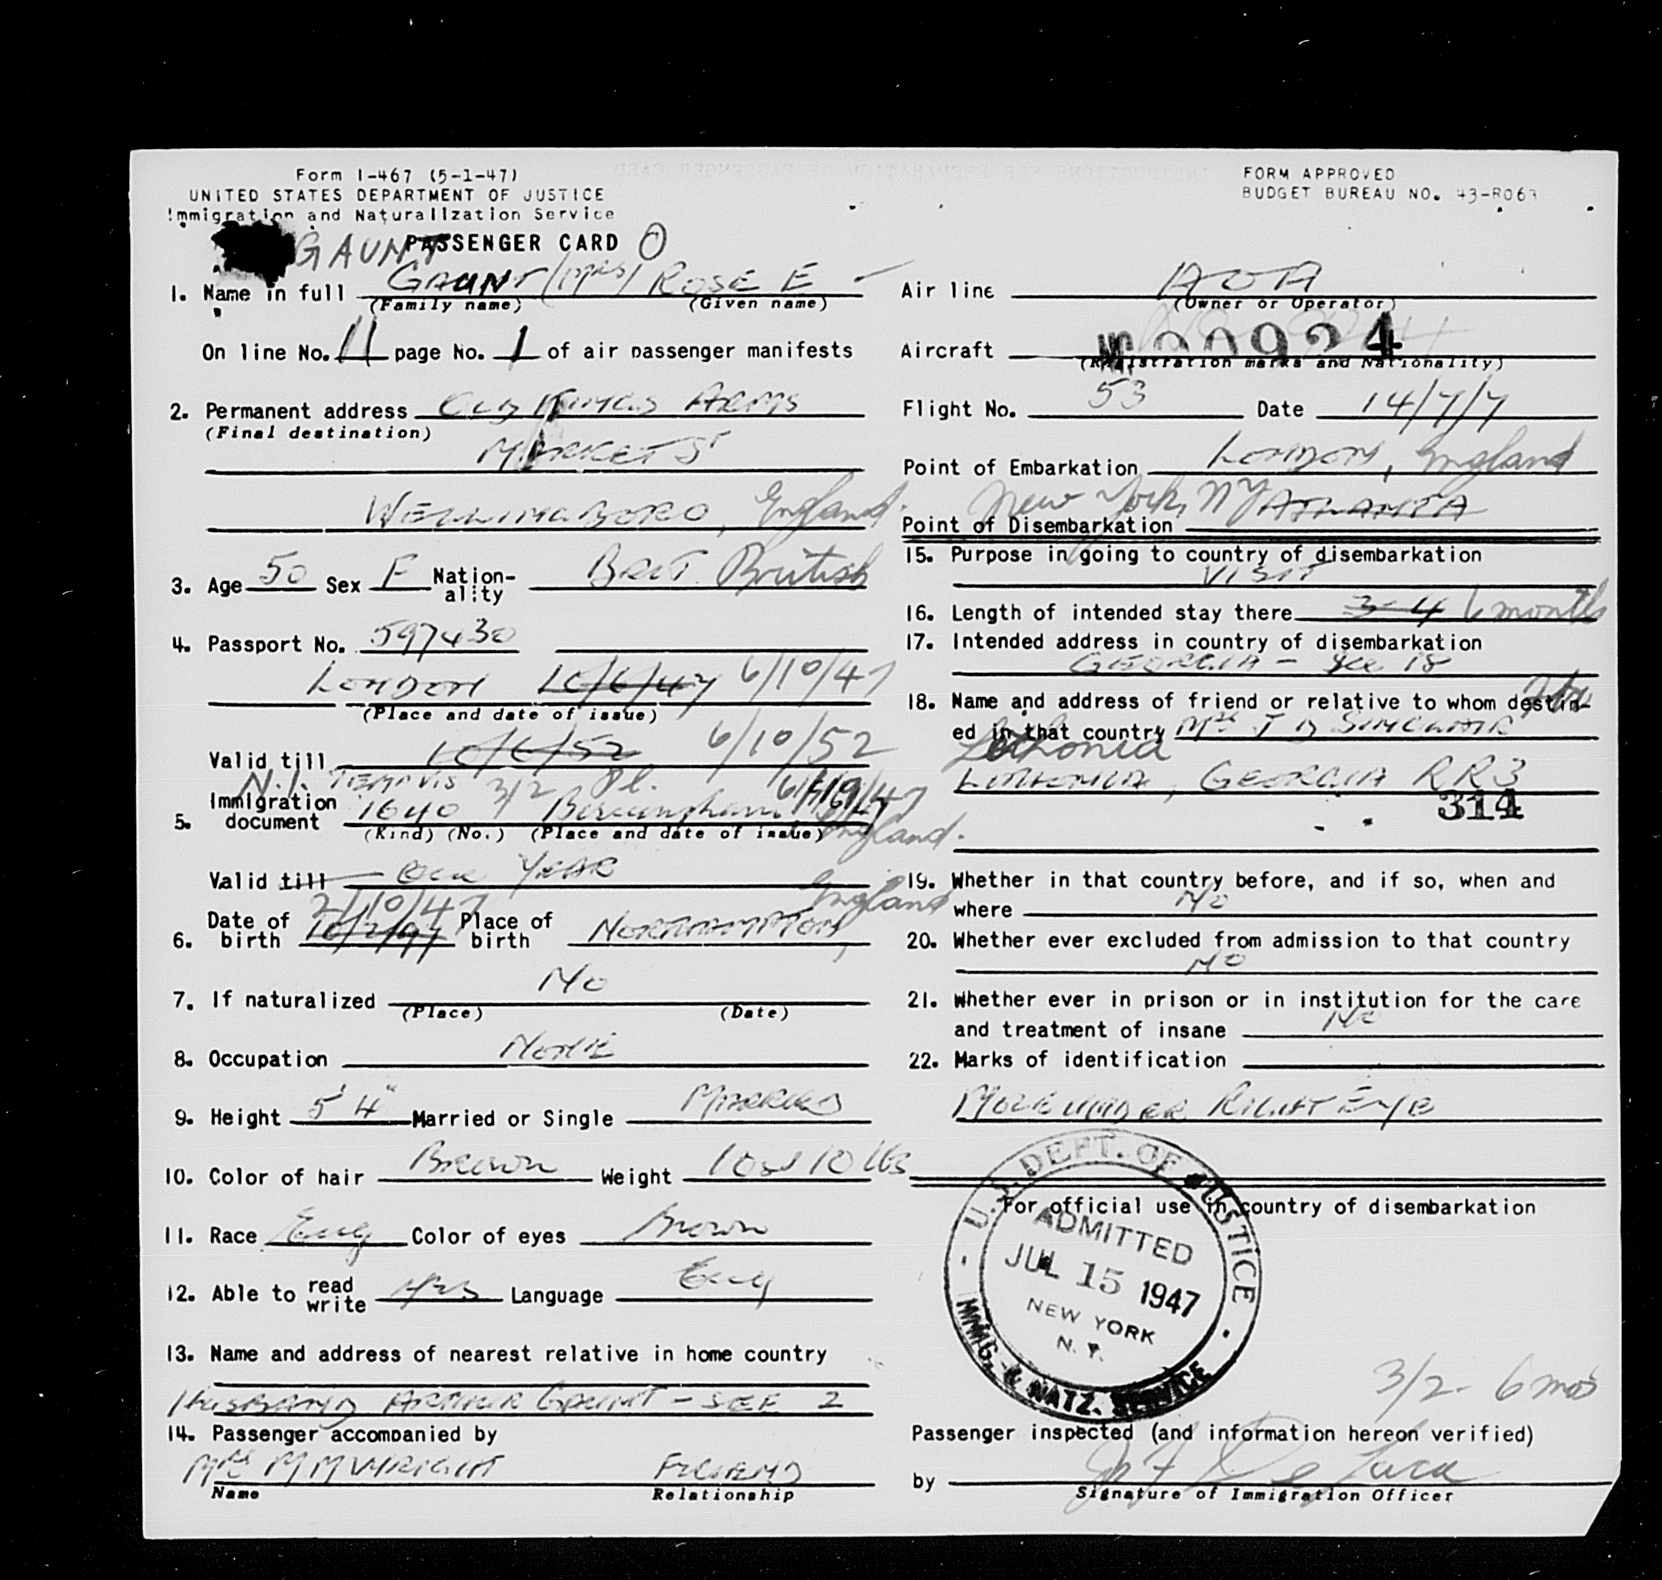 Form I-467 (5-1-47)
UNITED STATES DEPARTMENT OF JUSTICE
Immigration and Naturalization Service
FORM APPROVED
BUDGET BUREAU NO. 43-R063
GAUNT
PASSENGER CARD
1. Name in full GAUNT (Mrs) ROSE E
(Family name) (Given name)
On line No. 11 page No. 1 of air passenger manifests
2. Permanent address ARMS
(Final destination)
MARKET ST
WELLINGBORO, England.
3. Age 50 Sex F Nation-
ality BRIT. British
4. Passport No. 597430
LONDON 10/6/47 6/10/47
(Place and date of issue)
Valid till 10/6/52 6/10/52
N.I. TEMP VIS 3/2 Pl.
5. Immigration
document 1640 Birmingham 6/19/47
England.
(Kind) (No.) (Place and date of issue)
Valid till One YEAR
2/10/47
6. Date of
birth 10/2/97 Place of
birth NORTHAMPTON, England
7. If naturalized NO
(Place) (Date)
8. Occupation NONE
9. Height 5' 4" Married or Single MARRIED
10. Color of hair Brown Weight 10 lbs
11. Race Eng Color of eyes Brown
12. Able to read
write YES Language Eng
13. Name and address of nearest relative in home country
HUSBAND ARTHUR GAUNT - SEE 2
14. Passenger accompanied by
MRS M M WRIGHT FRIEND
Name Relationship
Air line AOA
(Owner or Operator)
Aircraft NC90924
(Registration marks and Nationality)
Flight No. 53 Date 14/7/7
Point of Embarkation LONDON, England
New York, NY
Point of Disembarkation ATLANTA
15. Purpose in going to country of disembarkation
VISIT
16. Length of intended stay there 3-4 6 months
17. Intended address in country of disembarkation
GEORGIA - See 18
18. Name and address of friend or relative to whom destin-
ed in that country Mrs J B SINCLAIR
Lithonia
LITHONIA, GEORGIA RR3
314
19. Whether in that country before, and if so, when and
where NO
20. Whether ever excluded from admission to that country
NO
21. Whether ever in prison or in institution for the care
and treatment of insane NO
22. Marks of identification
MOLE UNDER RIGHT EYE
For official use in country of disembarkation
U.S. DEPT. OF JUSTICE
ADMITTED
JUL 15 1947
NEW YORK
N. Y.
IMMIG. & NATZ. SERVICE
3/2- 6 mos
Passenger inspected (and information hereon verified)
by De Luca
Signature of Immigration Officer